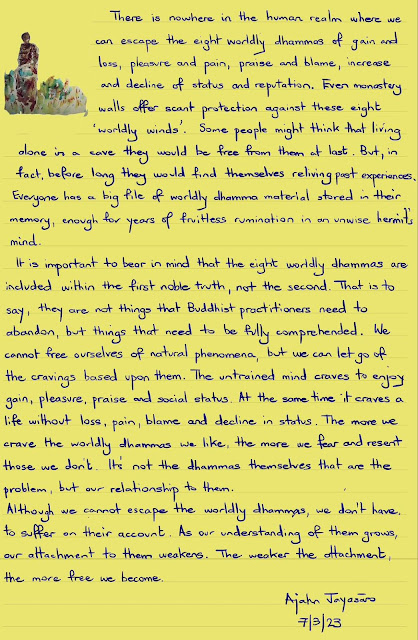 There is nowhere in the human realm where we
can escape the eight worldly dhammas of gain and
loss, pleasure and pain, praise and blame, increase
and decline of status and reputation. Even monastery
walls offer scant protection against these eight
'worldly winds'. Some people might think that living
alone in a cave they would be free from them at last. But, in
fact, before long they would find themselves reliving past experiences.
Everyone has a big file of worldly dhamma material stored in their
memory, enough for years of fruitless rumination in an unwise hermit's
mind.
It is important to bear in mind that the eight worldly dhammas are
included within the first noble truth, not the second. That is to
say, they are not things that Buddhist practitioners need to
abandon, but things that need to be fully comprehended. We
cannot free ourselves of natural phenomena, but we can let go of
the cravings based upon them. The untrained mind craves to enjoy
gain, pleasure, praise and social status. At the same time it craves a
life without loss, pain, blame and decline in status. The more we
crave the worldly dhammas we like, the more we fear and resent
those we don't. It's not the dhammas themselves that are the
problem, but our relationship to them.
Although we cannot escape the worldly dhammas, we don't have
to suffer on their account. As our understanding of them grows,
our attachment to them weakens. The weaker the attachment,
the more free we become.
Ajahn Jayasāro
7/3/23